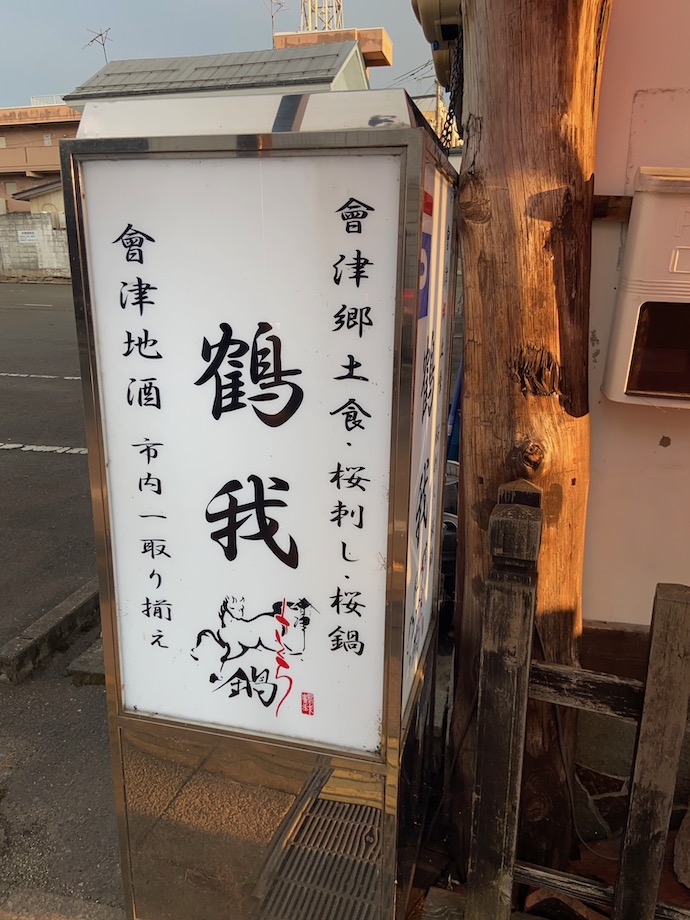 會津郷土食・桜刺し・桜鍋
鶴我
會津地酒 市内一取り揃え
會津
さくら
鍋
鶴我